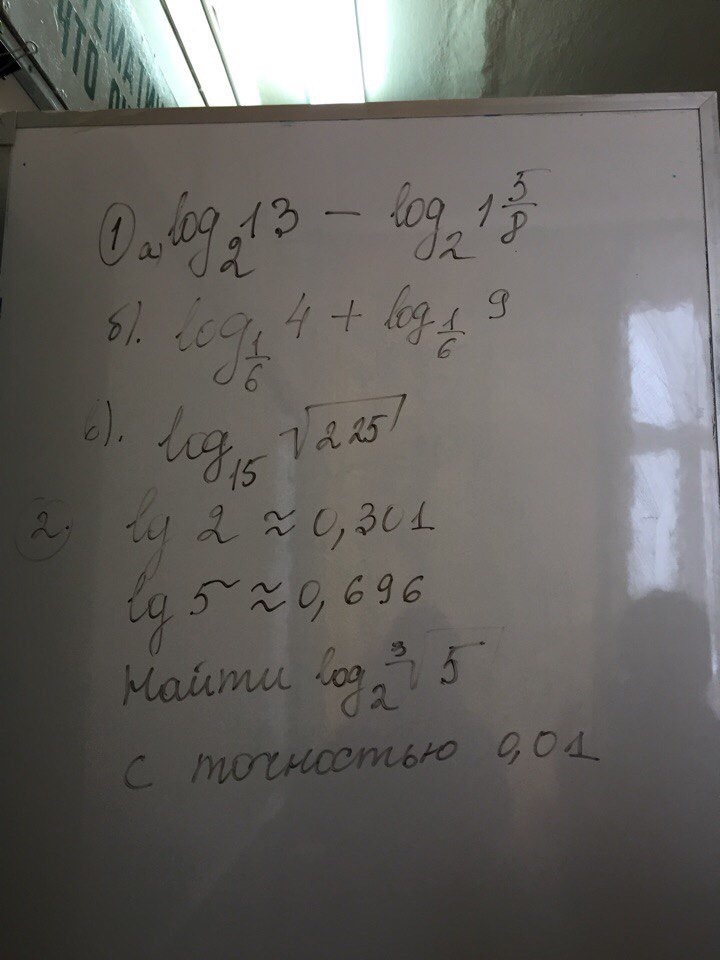 ЕМАТИ
ЧТО
① а) log₂13 − log₂1 5/8
б). log_{1/6} 4 + log_{1/6} 9
в). log₁₅ √225
2. lg 2 ≈ 0,301
lg 5 ≈ 0,696
Найти log₂ ∛5
с точностью 0,01